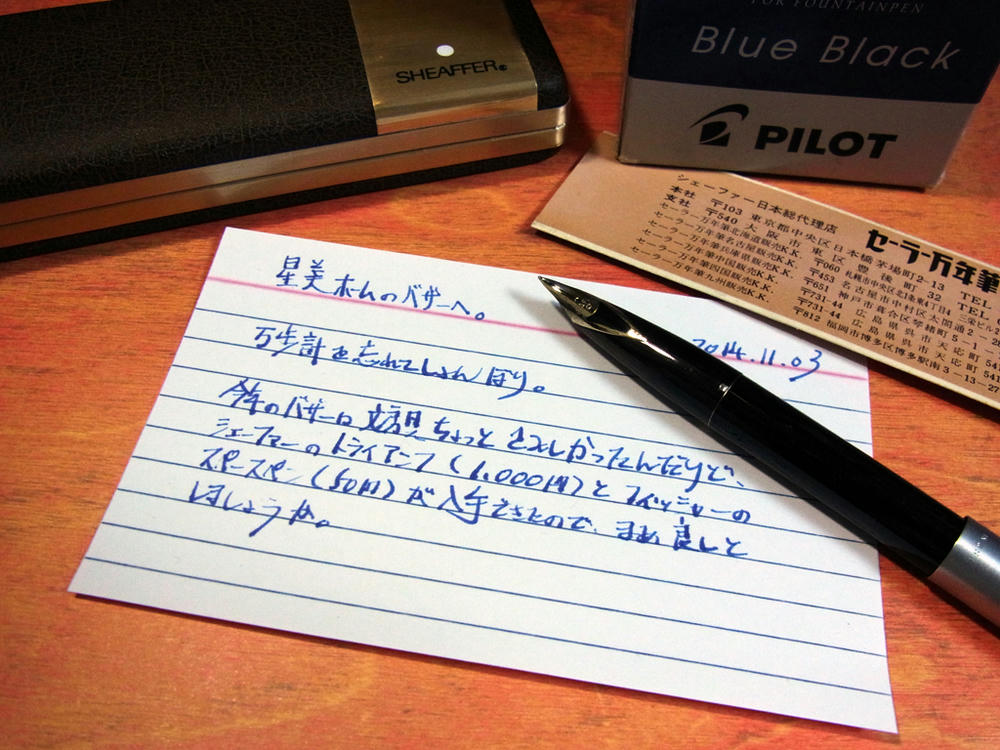 SHEAFFER®
FOR FOUNTAINPEN
Blue Black
PILOT
シェーファー日本総代理店
セーラー万年筆
本社 〒103 東京都中央区日本橋茅場町2-13 TEL
支社 〒540 大阪市東区豊後町32 TEL
セーラー万年筆北海道販売K.K. 〒060 札幌市中央区北1条東1丁目4
セーラー万年筆名古屋販売K.K. 〒453 名古屋市中村区太閤通2
セーラー万年筆兵庫販売K.K. 〒651 神戸市葺合区琴緒町5-1
セーラー万年筆中国販売K.K. 〒731-44 広島県呉市天応町
セーラー万年筆四国販売K.K. 〒731-44 広島県呉市天応町 541
セーラー万年筆九州販売K.K. 〒812 福岡市博多区博多駅南3-13-27
星美ホームのバザーへ。
2014.11.03
万歩計を忘れてしょんぼり。
今年のバザーは文房具ちょっとさみしかったんだけど、
シェーファーのトライアンフ(1,000円)とフィッシャーの
スペースペン(50円)が入手できたので、まぁ良しと
しましょうか。